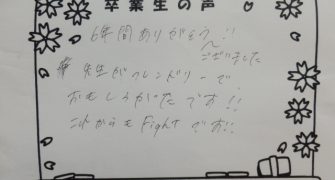 卒業生の声
6年間ありがとう!!
ございました
先生がフレンドリーで、
おもしろかったです!!
これからもFightです!!